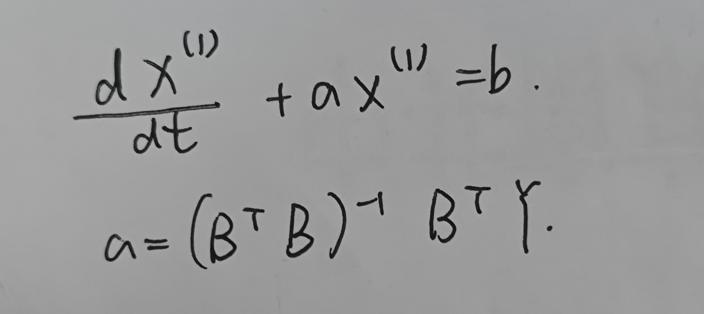 \frac{dx^{(1)}}{dt} + ax^{(1)} = b.
a = (B^T B)^{-1} B^T Y.